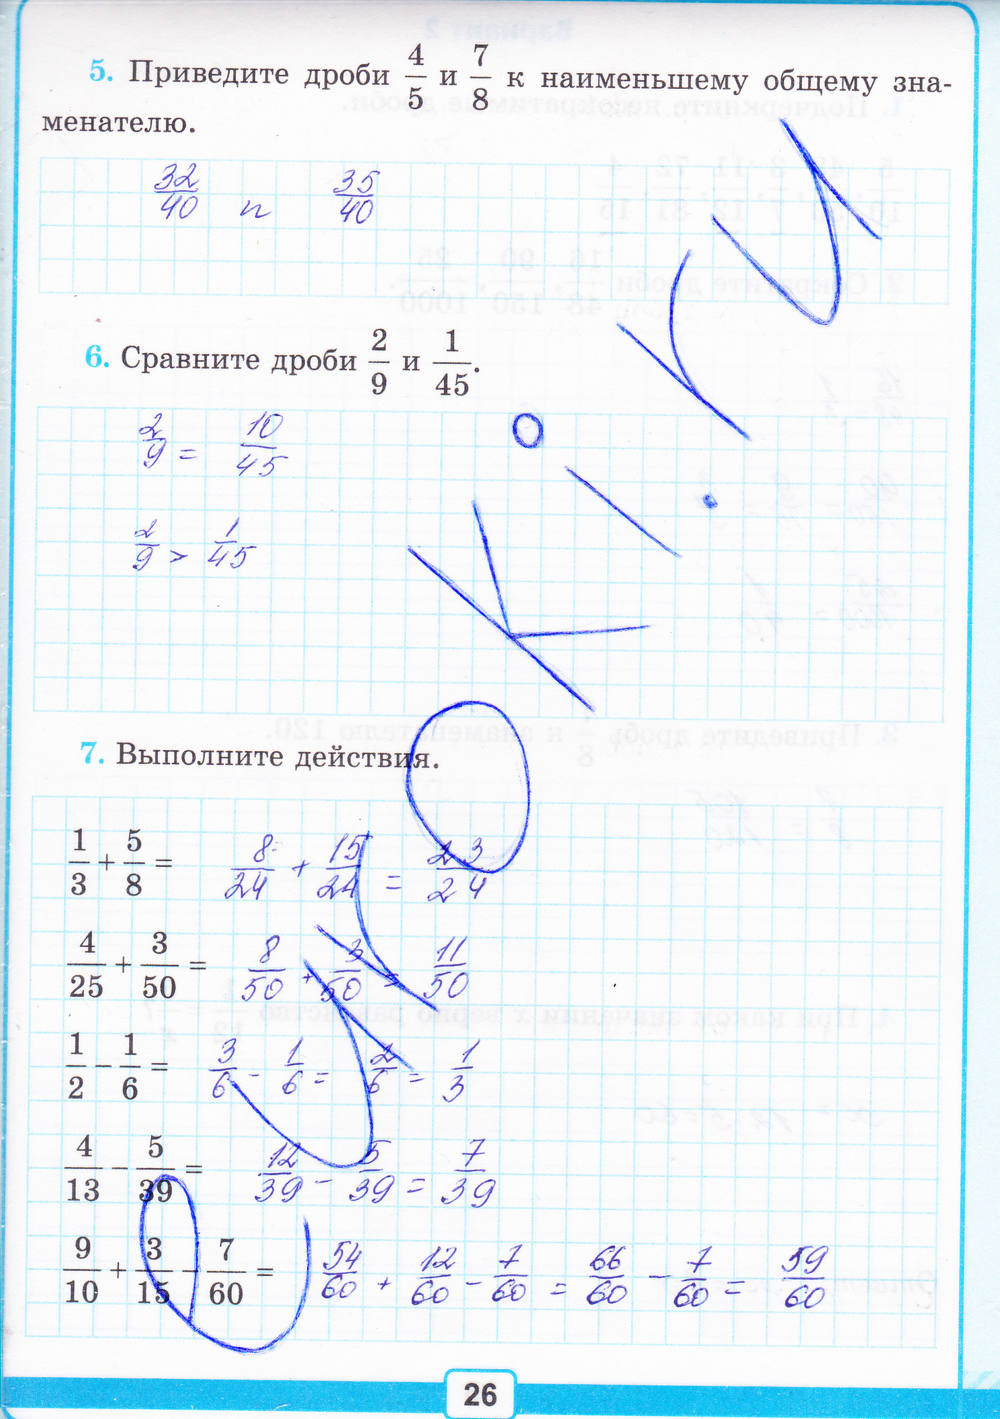 5. Приведите дроби 4/5 и 7/8 к наименьшему общему зна-
менателю.
32/40 и 35/40
6. Сравните дроби 2/9 и 1/45.
2/9 = 10/45
2/9 > 1/45
7. Выполните действия.
1/3 + 5/8 = 8/24 + 15/24 = 23/24
4/25 + 3/50 = 8/50 + 3/50 = 11/50
1/2 − 1/6 = 3/6 − 1/6 = 2/6 = 1/3
4/13 − 5/39 = 12/39 − 5/39 = 7/39
9/10 + 3/15 − 7/60 = 54/60 + 12/60 − 7/60 = 66/60 − 7/60 = 59/60
26